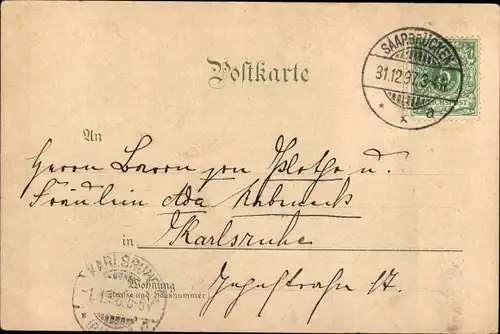 Postkarte
SAARBRÜCKEN
31.12.97. 3-4N.
* * a
An
Herrn Baron von Plotho u.
Fräulein Ada
in Karlsruhe
KARLSRUHE
Wohnung
Straße und Hausnummer
17.